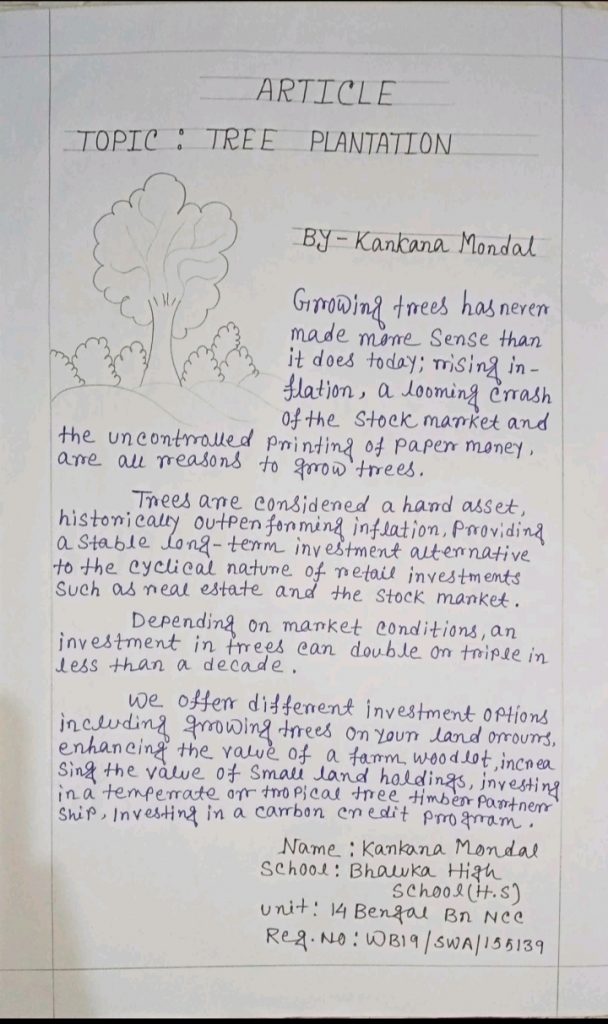 ARTICLE
TOPIC : TREE PLANTATION
BY - Kankana Mondal
Growing trees has never
made more Sense than
it does today; rising in-
flation, a looming crash
of the Stock market and
the uncontrolled printing of paper money,
are all reasons to grow trees.
Trees are considered a hard asset,
historically outperforming inflation, providing
a stable long-term investment alternative
to the cyclical nature of retail investments
Such as real estate and the stock market.
Depending on market conditions, an
investment in trees can double or triple in
less than a decade.
We offer different investment options
including growing trees on your land or ours,
enhancing the value of a farm woodlot, increa
sing the value of small land holdings, investing
in a temperate or tropical tree timber partner
ship, investing in a carbon credit program.
Name : Kankana Mondal
School : Bhaluka High
School (H.S)
Unit : 14 Bengal Bn NCC
Reg. No : WB19/SWA/155139